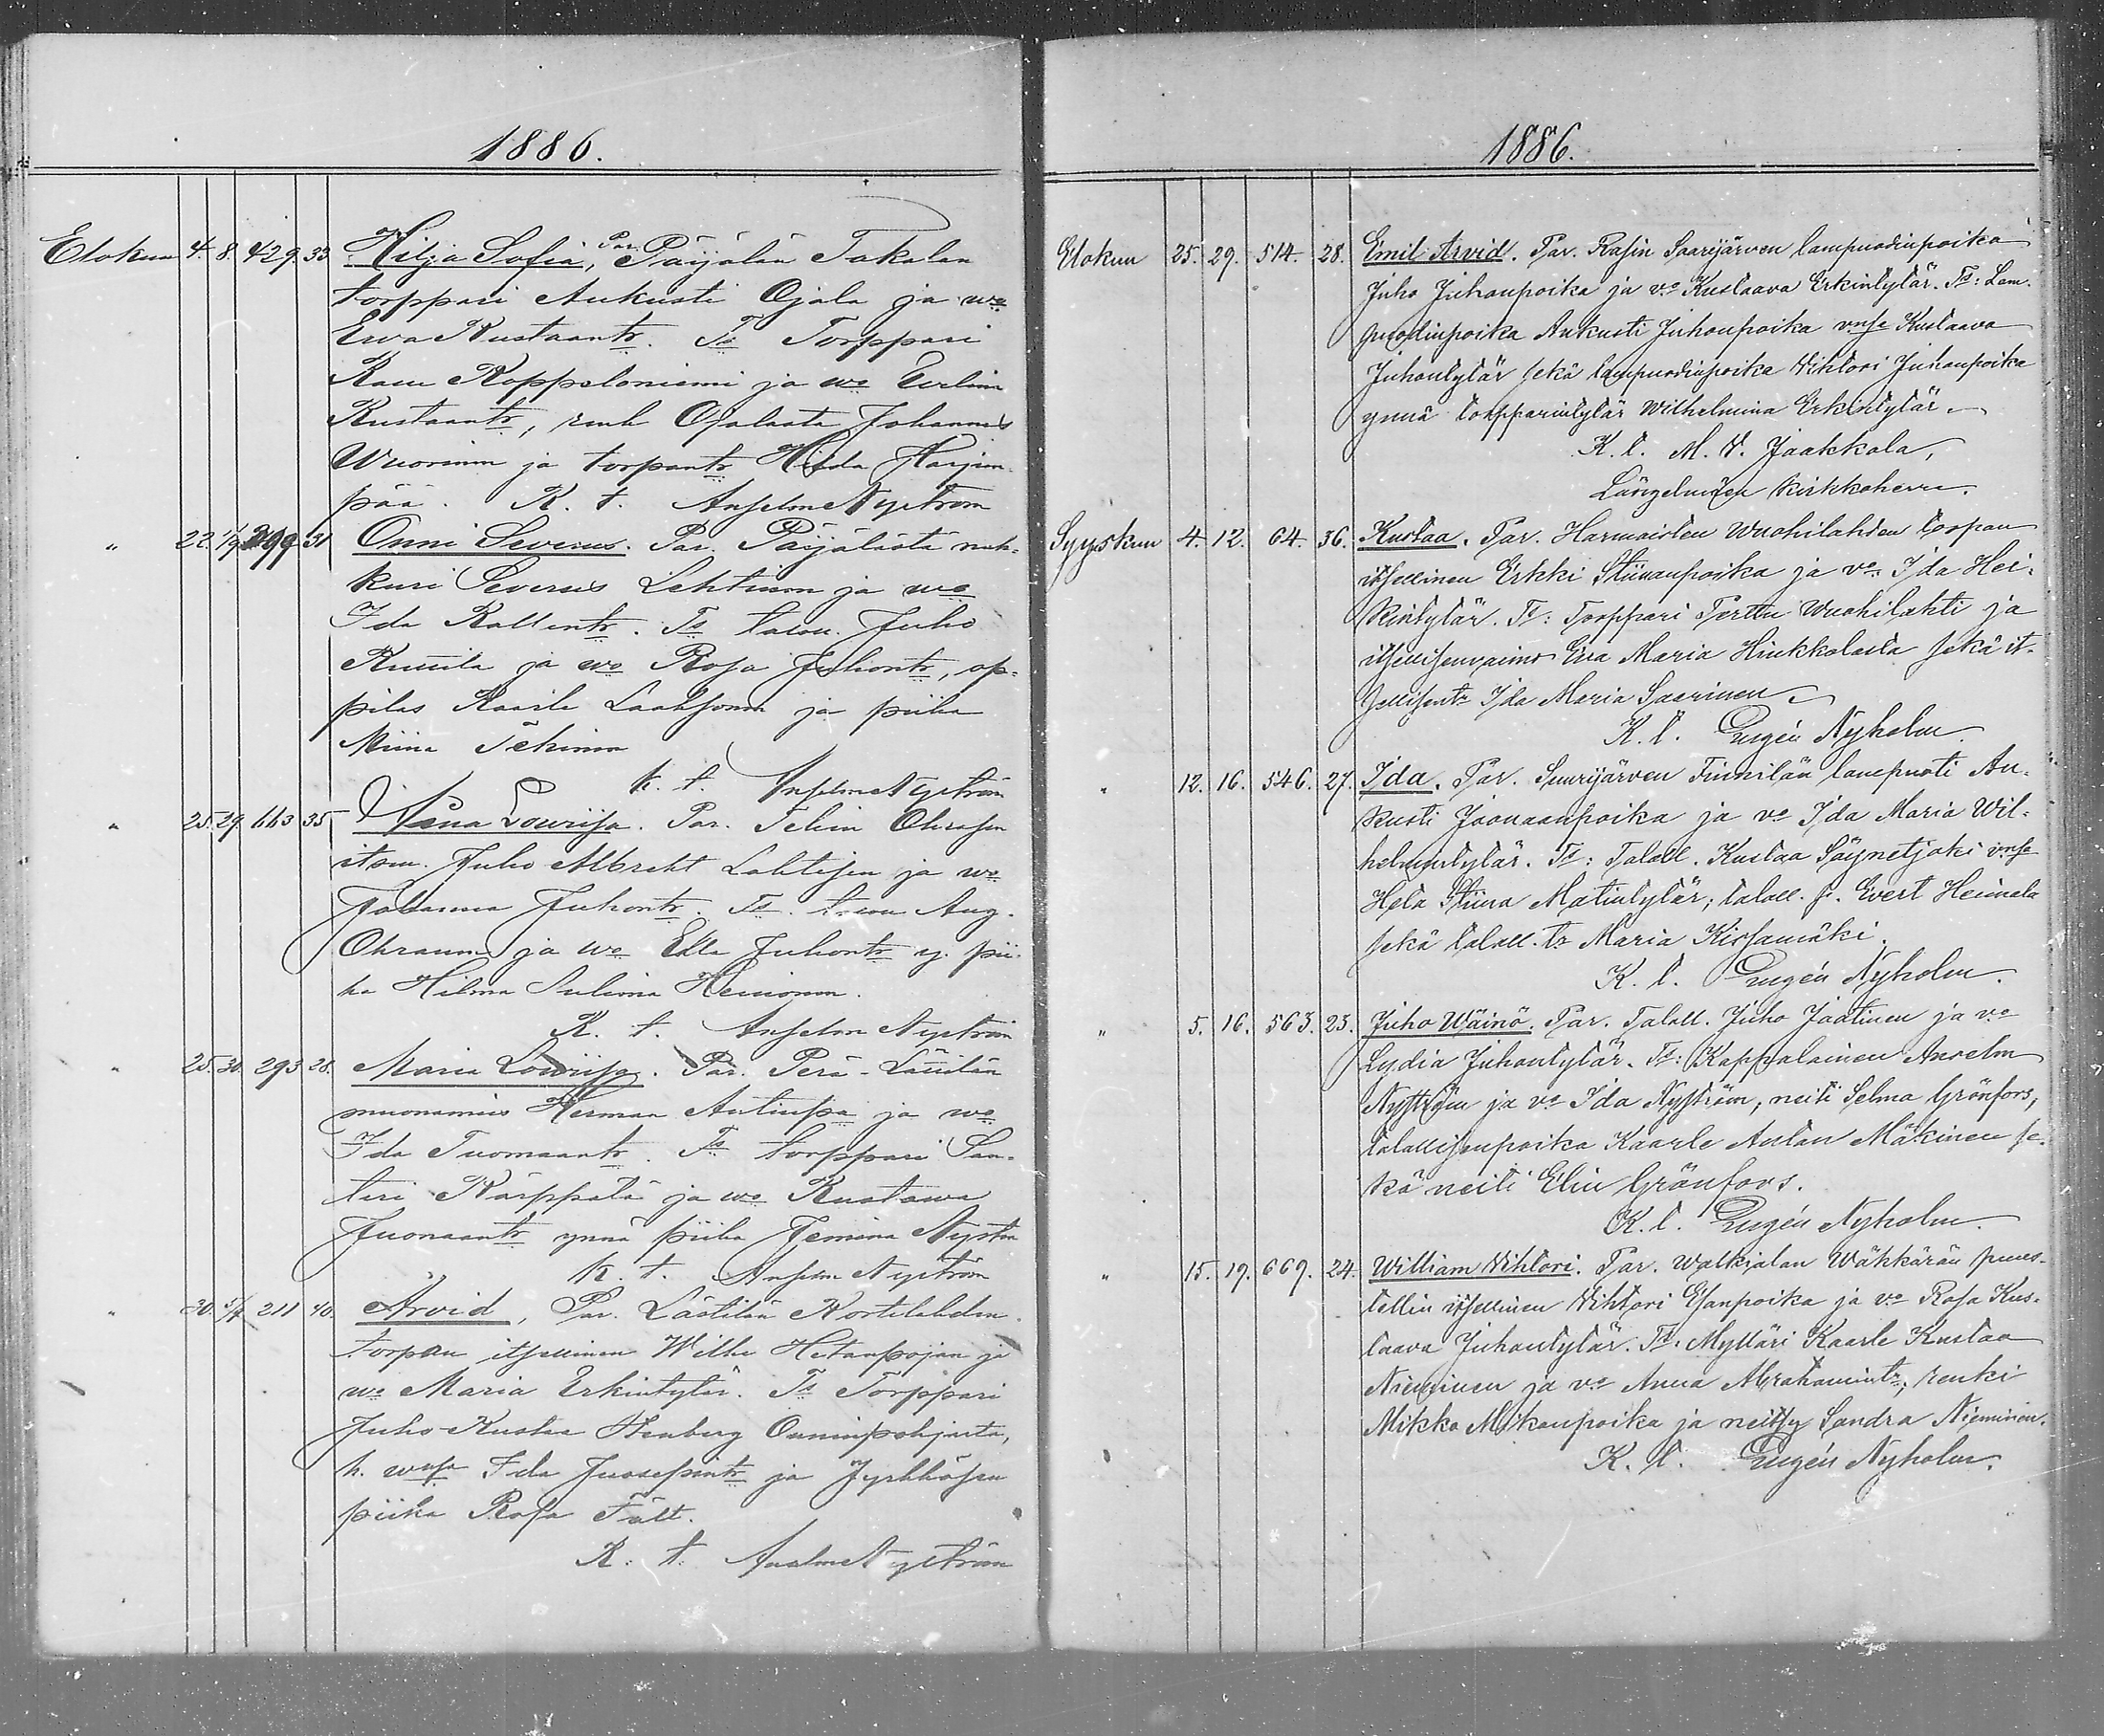 1886.
Elokuu 4. 8. 429. 33 Hilja Sofia, Par. Päijälän Takalan
torppari Aukusti Ojala ja wo
Ewa Kustaantr. Ts Torppari
Koppeloniemi ja wo Eveliina
Kustaantr, renk Ojalasta Johannes
Wuorinen ja torpantr Hilda Harjun
pää. K. t. Anselm Nyström
" 22. 1/9 299 31 Onni Severus. Par. Päijälästä nah-
kuri Severus Lehtinen ja wo
Ida Kallentr. Ts talon. Juho
Kuusila ja wo Rosa Juhontr, op-
pilas Kaarle Laaksonen ja piika
Miina
K. t. Anselm Nyström
" 25. 29 113 35 Lowiisa. Par.
itsm. Juho Albreht Lahtisen ja wo
Johanna Juhontr. Ts. Aug.
ja wo Edla Juhontr y. pii-
ka Hilma Heinonen.
K. t. Anselm Nyström
" 25. 30. 293 28. Maria Lowiisa. Par. Perä-Länkilän
muonamies Herman Antinp. ja wo
Ida Tuomaantr. Ts torppari San-
teri Kärppälä ja wo Kustawa
Juonaantr ynnä piika Nyström
K. t. Anselm Nyström
" 30. 5/9 211 40. Arvid, Par. Lästilän Kortelahden
torpan itsellinen Wilhe Hetanpojan ja
wo Maria Erkintytär. Ts Torppari
Juho Kustaa Stenberg Onninpohjasta,
h. wmsa Ida Juosepintr ja
piika Rosa Fält.
K. t. Anselm Nyström
1886.
Elokuu 25. 29. 514. 28. Emil Arvid. Par. Rasin Saarijärven lampuodinpoika
Juho Juhanpoika ja vo Kustaava Erkintytär. Ts: Lam-
puodinpoika Aukusti Juhonpoika vmsa Kustaava
Juhontytär sekä lampuodinpoika Vihtori Juhanpoika
ynnä torpparintytär Wilhelmina Erkintytär.
K. t. M. V. Jaakkola,
Längelmäen kirkkoherra.
Syyskuu 4. 12. 64. 36. Kustaa. Par. Harmoisten Wuohilahden torpan
itsellinen Erkki Stiinanpoika ja vo Ida Hei-
kintytär. Ts: Torppari Perttu Wuohilahti ja
itsellisenvaimo Eva Maria Hiukkolasta sekä it-
sellisentr Ida Maria Saarinen.
K. t. Eugén Nyholm
" 12. 16. 546. 27. Ida. Par. Suurijärven Tiinilän lampuoti Au-
kusti Joonaanpoika ja vo Ida Maria Wil-
helmintytär. Ts: Talall. Kustaa Säynetjoki vmsa
Heta Stiina Matintytär; talall. p. Evert Heinola
sekä talall. tr Maria Kirsamäki.
K. t. Eugén Nyholm.
" 5. 16. 563. 23. Juho Wäinö. Par. Talall. Juho Jaatinen ja vo
Lydia Juhontytär. Ts: Kappalainen Anselm
Nyström ja vo Ida Nyström, neiti Selma Grönfors,
talollisenpoika Kaarle Antan Mäkinen se-
kä neiti Elin Grönfors.
K. t. Eugén Nyholm.
" 15. 19. 669. 24. William Vihtori. Par. Walkjalan Wäkkärän puus-
tellin itsellinen Vihtori Esanpoika ja vo Rosa Kus-
taava Juhantytär. Ts: Mylläri Kaarle Kustaa
Nieminen ja vo Anna Abrahamintr; renki
Mikko Mikonpoika ja neitsy Sandra Nieminen.
K. t. Eugén Nyholm.